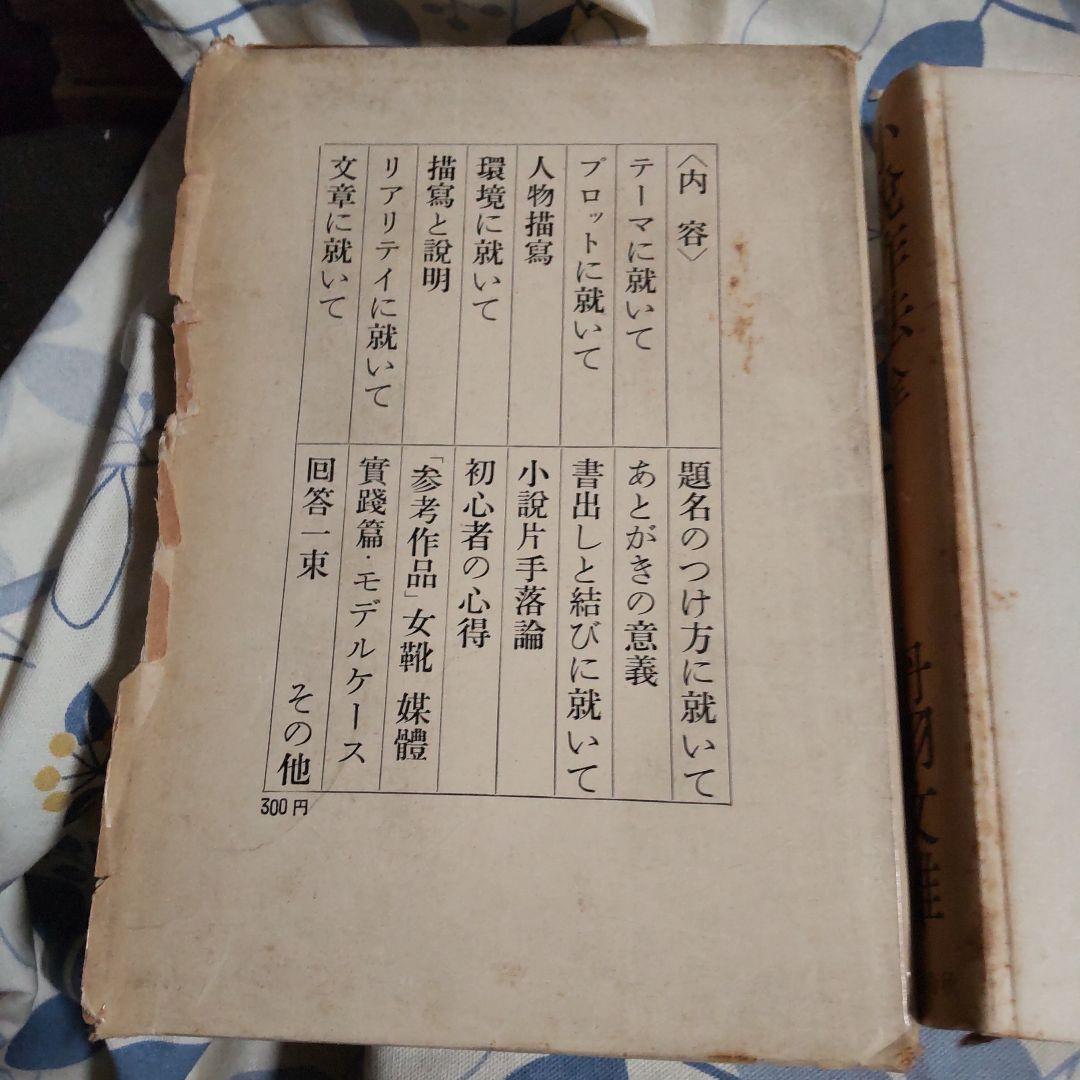 〈内容〉
テーマに就いて
プロットに就いて
人物描寫
環境に就いて
描寫と說明
リアリテイに就いて
文章に就いて
題名のつけ方に就いて
あとがきの意義
書出しと結びに就いて
小說片手落論
初心者の心得
「参考作品」女靴 媒體
實踐篇・モデルケース
回答一束 その他
300円
丹羽文雄